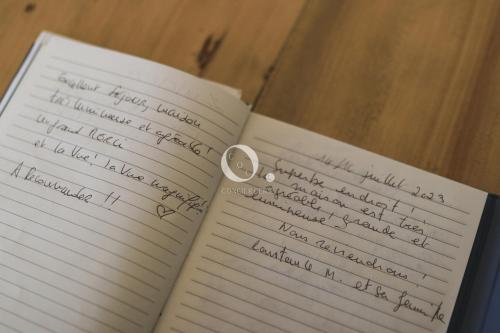 Excellent séjour, maison
très lumineuse et agréable !
un grand MERCI
et la vue ! la vue magnifique
A Recommander !!
O.
CONCIERGERIE
14/14 juillet 2023
Superbe endroit !
La maison est très
agréable ! grande et
lumineuse !
Nous reviendrons !
Constance M. et sa famille